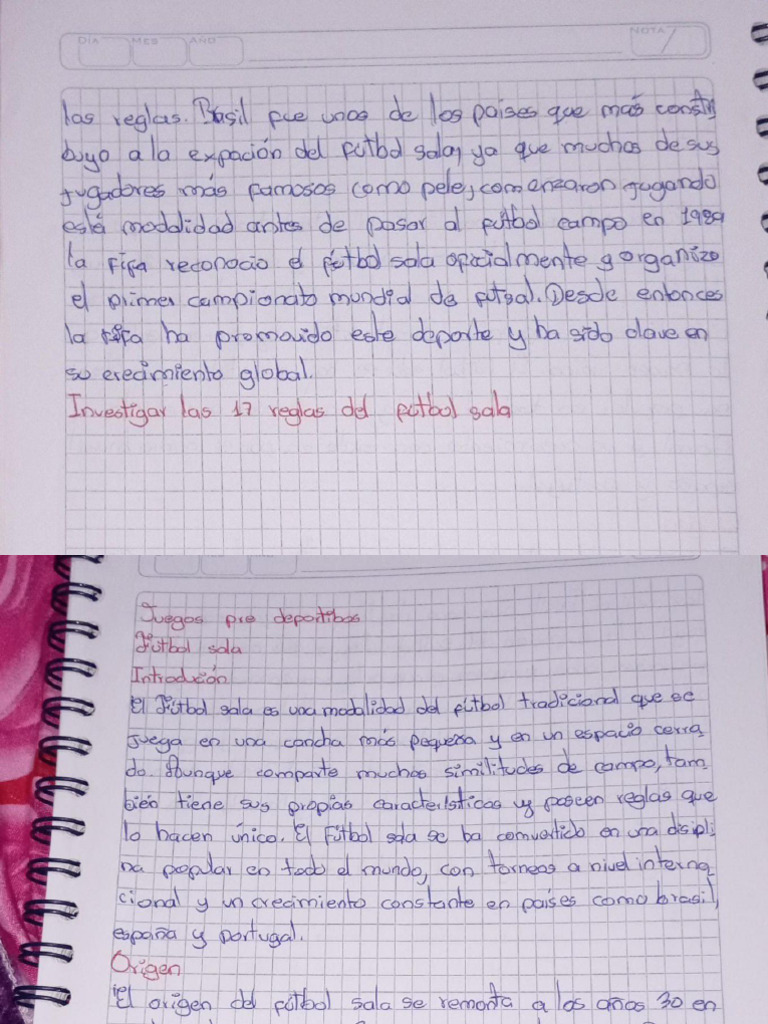 DÍA MES AÑO NOTA
las reglas. Brasil fue unos de los paises que más constri
buyo a la expación del futbol sala, ya que muchos de sus
jugadores más famosos como pele, comenzaron jugando
está modalidad antes de pasar al fútbol campo en 1989
la Fifa reconocio el fútbol sala oficialmente y organizo
el primer campionato mundial de futsal. Desde entonces
la fifa ha promovido este deporte y ha sido clave en
su crecimiento global.
Investigar las 17 reglas del futbol sala
Juegos pre deportibos
Fútbol sala
Introdución
El Fútbol sala es una modalidad del fútbol tradicional que se
juega en una cancha más pequeña y en un espacio cerra
do. Aunque comparte muchas similitudes de campo, tam
bién tiene sus propias características y poseen reglas que
lo hacen único. El Fútbol sala se ha comvertido en una disipli
na popular en todo el mundo, con torneos a nivel interna
cional y un crecimiento constante en países como brasil,
españa y portugal.
Origen
El origen del fútbol sala se remonta a los años 30 en